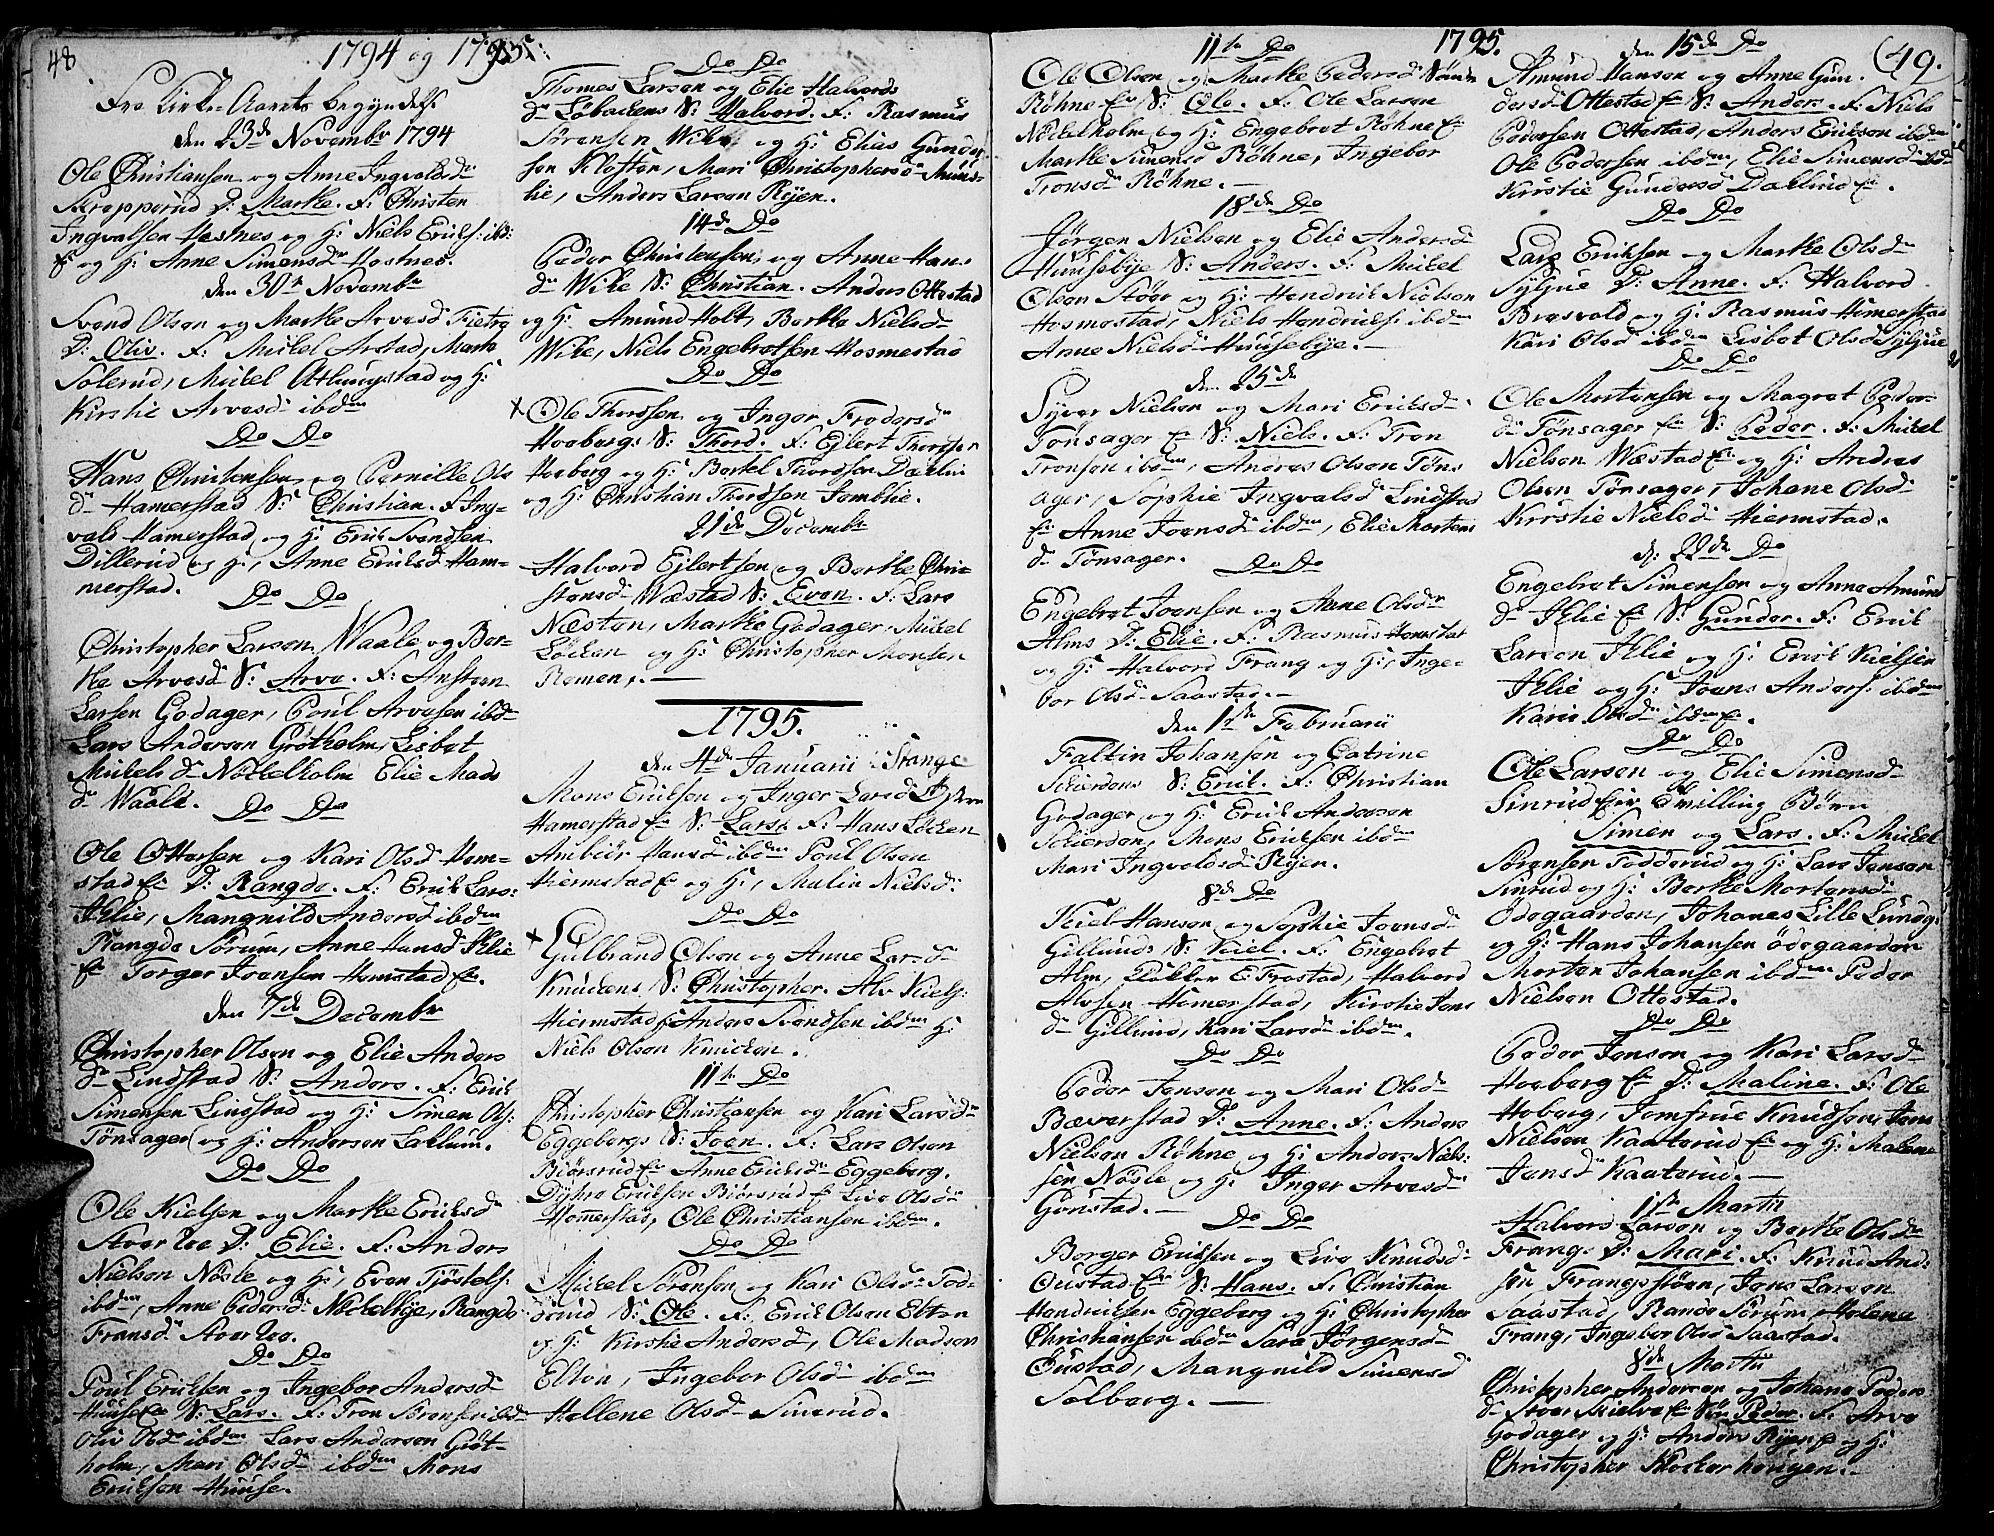 48
1794 og 1795:
Fra Kirke-Aarets begyndelse
den 23de Novembr 1794
Ole Christiansen og Anne Ingvalsdr
Kropperud D: Marthe. F: Christen
Ingvalsen Hosnes og H: Niels Erichs: ibd:
og H: Anne Simensdr Hosnes.
den 30te Novembr
Svend Olsen og Marthe Arvesdr
D: Oliv. F: Michel Arstad, Marta
Solerud, Michel Atlungstad og H:
Kirstie Arvesdr ibdm
Do Do
Hans Christensen og Pernille Ols
dr Hamerstad S: Christian. F: Ing-
vals Hamerstad, og H: Erik Svendsen
Dillerud og H:, Anne Eriksdr Ham-
merstad.
Do Do
Christopher Larsen Waale og Ber-
the Arvesdr S: Arve. F: Anstern
Larsen Godager, Poul Arvesen ibdm
Lars Andersen Grøtholm, Lisbet
Mikels dr Nøkkelholm Elie Mads
dr Waale.
Do Do
Ole Ottersen og Kari Olsdr Hom-
stad D: Rangde. F: Erik Lars:
Ilie, Mangnild Andersdr ibdm
Rangde Sørum, Anne Hansdr Ilie
Torger Joensen Homstad.
den 7de Decembr
Christopher Olsen og Elie Anders
dr Lindstad S: Anders. F: Erik
Simensen Lindstad og H: Simen Ols:
Tønsager og H: Andersen Laklum.
Do Do
Ole Kielsen og Marthe Eriksdr
D: Elie. F: Anders
Nielsen Nøsle og H:, Even Tjøstels:
ibdm, Anne Pedersdr Nøckelbye, Rangde
Fransdr
Do Do
Poul Eriksen og Ingebor Andersdr
Huuse S: Lars. F: Tron
Oliv Olsdr ibdm Lars Andersen Grøt-
holm, Mari Olsdr ibdm Mons
Eriksen Huuse.
Do Do
Thomes Larsen og Elie Halvords
dr Løbackens S: Halvord. F: Rasmus
Sørensen Wike, og H: Elias Gunder-
sen Kloften, Mari Christophersdr
lie, Anders Larsen Ryen.
14de Do
Peder Christensen, og Anne Hans
dr Wike S: Christian. Anders Ottestad
og H: Amund Holt, Berthe Nielsdr
Wike, Niels Engebretsen Hosmestad
Do Do
x Ole Thordsen og Inger Frodersdr
Hoeberg: S: Thord. F: Ejlert Thordsen
Hoeberg og H: Bertel Thordsen Dæhlin
og H: Christian Thordsen Somblie.
21de Decembr
Halvord Ejlertsen og Berthe Chri-
stensdr Wæstad S: Even. F: Lars
Næsten, Marthe Godager, Mikel
Løcken og H: Christopher Monsen
Romen.
1795.
den 4de Januarii Stange
Mons Eriksen og Inger Larsdr
Hamerstad S: Lars. F: Hans Løcken
Ambiør Hansdr ibdm Poul Olsen
Hiermstad og H:, Malin Nielsdr
Do Do
x Gulbrand Olsen og Anne Larsdr
Knuckens S: Christopher. Alv Kiels:
Hiermstad Anders Svendsen ibdm H:
Niels Olsen Knucken.
11te Do
Christopher Christiansen og Kari Larsdr
Eggebergs S: Joen. F: Lars Olsen
Biørsrud Anne Eriksdr Eggeberg.
Dyhre Eriksen Biørsrud Live Olsdr
Homerstad, Ole Christiansen ibdm.
Do Do
Mikel Sørensen og Kari Olsdr Tod-
derud S: Ole. F: Erik Olsen Elton
og H: Kirstie Andersdr, Ole Madsen
Elton, Ingebor Olsdr ibdm
Hellene Olsdr Sinrud.
1795. (49.
11te Do
Ole Olsen og Marthe Pedersdr
Røhne S: Ole. F: Ole Larsen
Nøkelholm og H: Engebret Røhne
Marthe Simensdr Røhne, Ingebor
Tronsdr Røhne.
18de Do
Jørgen Nielsen og Elie Andersdr
Huusebye S: Anders. F: Mikel
Olsen Støer og H: Hendrik Nielsen
Hosmestad, Niels Hendriks: ibdm
Anne Nielsdr Huusebye.
den 25de
Syver Nielsen og Mari Eriksdr
Tønsager S: Niels. F: Tron
Tronsen ibdm, Andreas Olsen Tøns
ager, Sophie Ingvalsdr Lindstad
Anne Joensdr ibdm, Elie Mortens
dr Tønsager.
Do Do
Engebret Joensen og Anne Olsdr
Alms D: Elie. F: Rasmus Homstad
og H: Halvord Frang og H:, Inge-
bor Olsdr Saastad.
den 1ste Februarii
Faltin Johansen og Catrine
Skierdens S: Erik. F: Christian
Godager og H: Erik Andersen
Skierden, Mons Eriksen ibdm
Mari Ingvalsdr Ryen.
8de Do
Kiel Hansen og Sophie Joensdr
Gillund: S: Kiel. F: Engebret
Alm, Frostad, Halvord
Alvsen Homerstad, Kirstie Jons
dr Gillund, Kari Larsdr ibdm.
Do Do
Peder Jensen og Mari Olsdr
Bæverstad D: Anne. F: Anders
Nielsen Røhne og H: Anders Niels:
sen Nøsle og H: Inger Arvesdr
Gonstad.
Do Do
Borger Eriksen og Live Knudsdr
Oustad S: Hans. F: Christian
Hendriksen Eggeberg og H: Christopher
Christiansen ibdm Sara Jørgensdr
Oustad, Mangnild Simensdr
Solberg.
den 15de Do
Amund Hansen og Anne Gun-
dersdr Ottestad S: Anders. F: Niels
Pedersen Ottestad, Anders Eriksen ibdm
Ole Pedersen ibdm, Elie Simensdr ibd
Kirstie Gundersdr Dællind.
Do Do
Lars Eriksen og Marthe Olsdr
Syljue D: Anne. F: Halvord
Bresvold og H: Rasmus Homerstad
Kari Olsdr ibdm Lisbet Olsdr Syljue
Do Do
Ole Mortensen og Magret Peder-
dr Tønsager S: Peder. F: Mikel
Nielsen Wæstad og H: Andreas
Olsen Tønsager, Johane Olsdr
Kirstie Nielsdr Hiermstad.
d: 22de Do
Engebret Simensen og Anne Amund
dr Ilie S: Gunder. F: Erik
Larsen Ilie og H: Erik Kielsen
Ilie og H: Joens Anders: ibdm
Kari Olsdr ibdm.
Do Do
Ole Larsen og Elie Simensdr
Sinrud Tvilling Børn
Simen og Lars. F: Mikel
Sørensen Todderud og H: Lars Jensen
Sinrud og H: Berthe Mortensdr
Ødegaarden, Johanes Lille Lundg:
og H: Hans Johansen Ødegaarden
Morten Johansen ibdm Peder
Nielsen Ottestad.
Do Do
Peder Jensen og Kari Larsdr
Hoeberg D: Maline. F: Ole
Hoberg, Jomfrue Knudsen, Jens
Nielsen Kaaterud og H: Malene
Jonsdr Kaaterud.
1ste Martii
Halvord Larsen og Berthe Olsdr
Frang: D: Mari. F: Knud And-
sen Frangsøien, Jens Larsen
Saastad, Rande Sørum, Helena
Frang, Ingebor Olsdr Saastad.
8de Martii
Christopher Andersen og Johane Peders
dr Peder. F: Arve
Godager og H: Anders Ryen og H:
Christopher Klockerhougen.